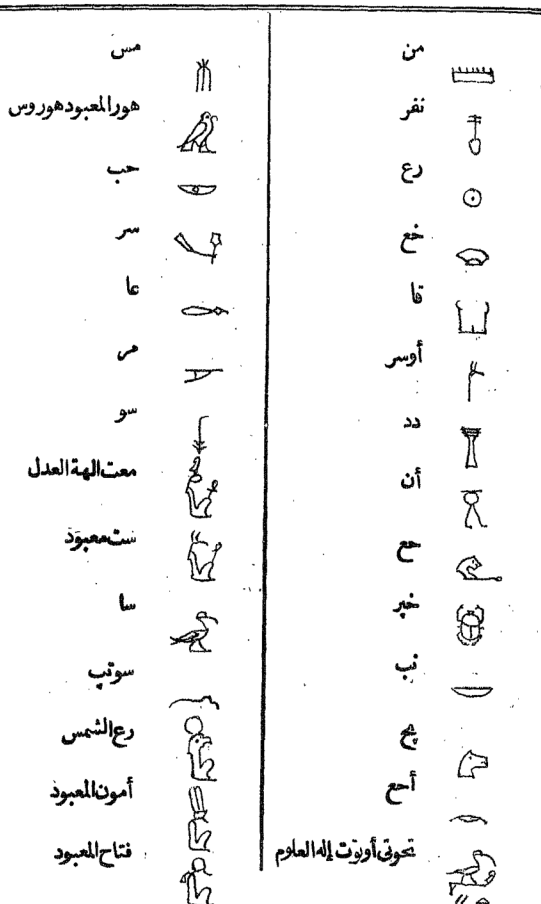 من
نفر
رع
خع
قا
أوسر
دد
أن
حع
خبر
نب
پح
أحع
تحوتى أوتوت إله العلوم
مس
هور المعبود هوروس
حب
سر
عا
مر
سو
معت الهة العدل
ست معبود
سا
سوتپ
رع الشمس
أمون المعبود
فتاح المعبود